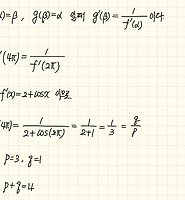 α)=β , g(β)=α 일 때 g'(β)= 1/f'(α) 이다
'(4π)= 1/f'(2π)
f'(x)=2+cosx 이므로
(4π)= 1/(2+cos(2π)) = 1/(2+1) = 1/3 = q/p
p=3, q=1
p+q=4